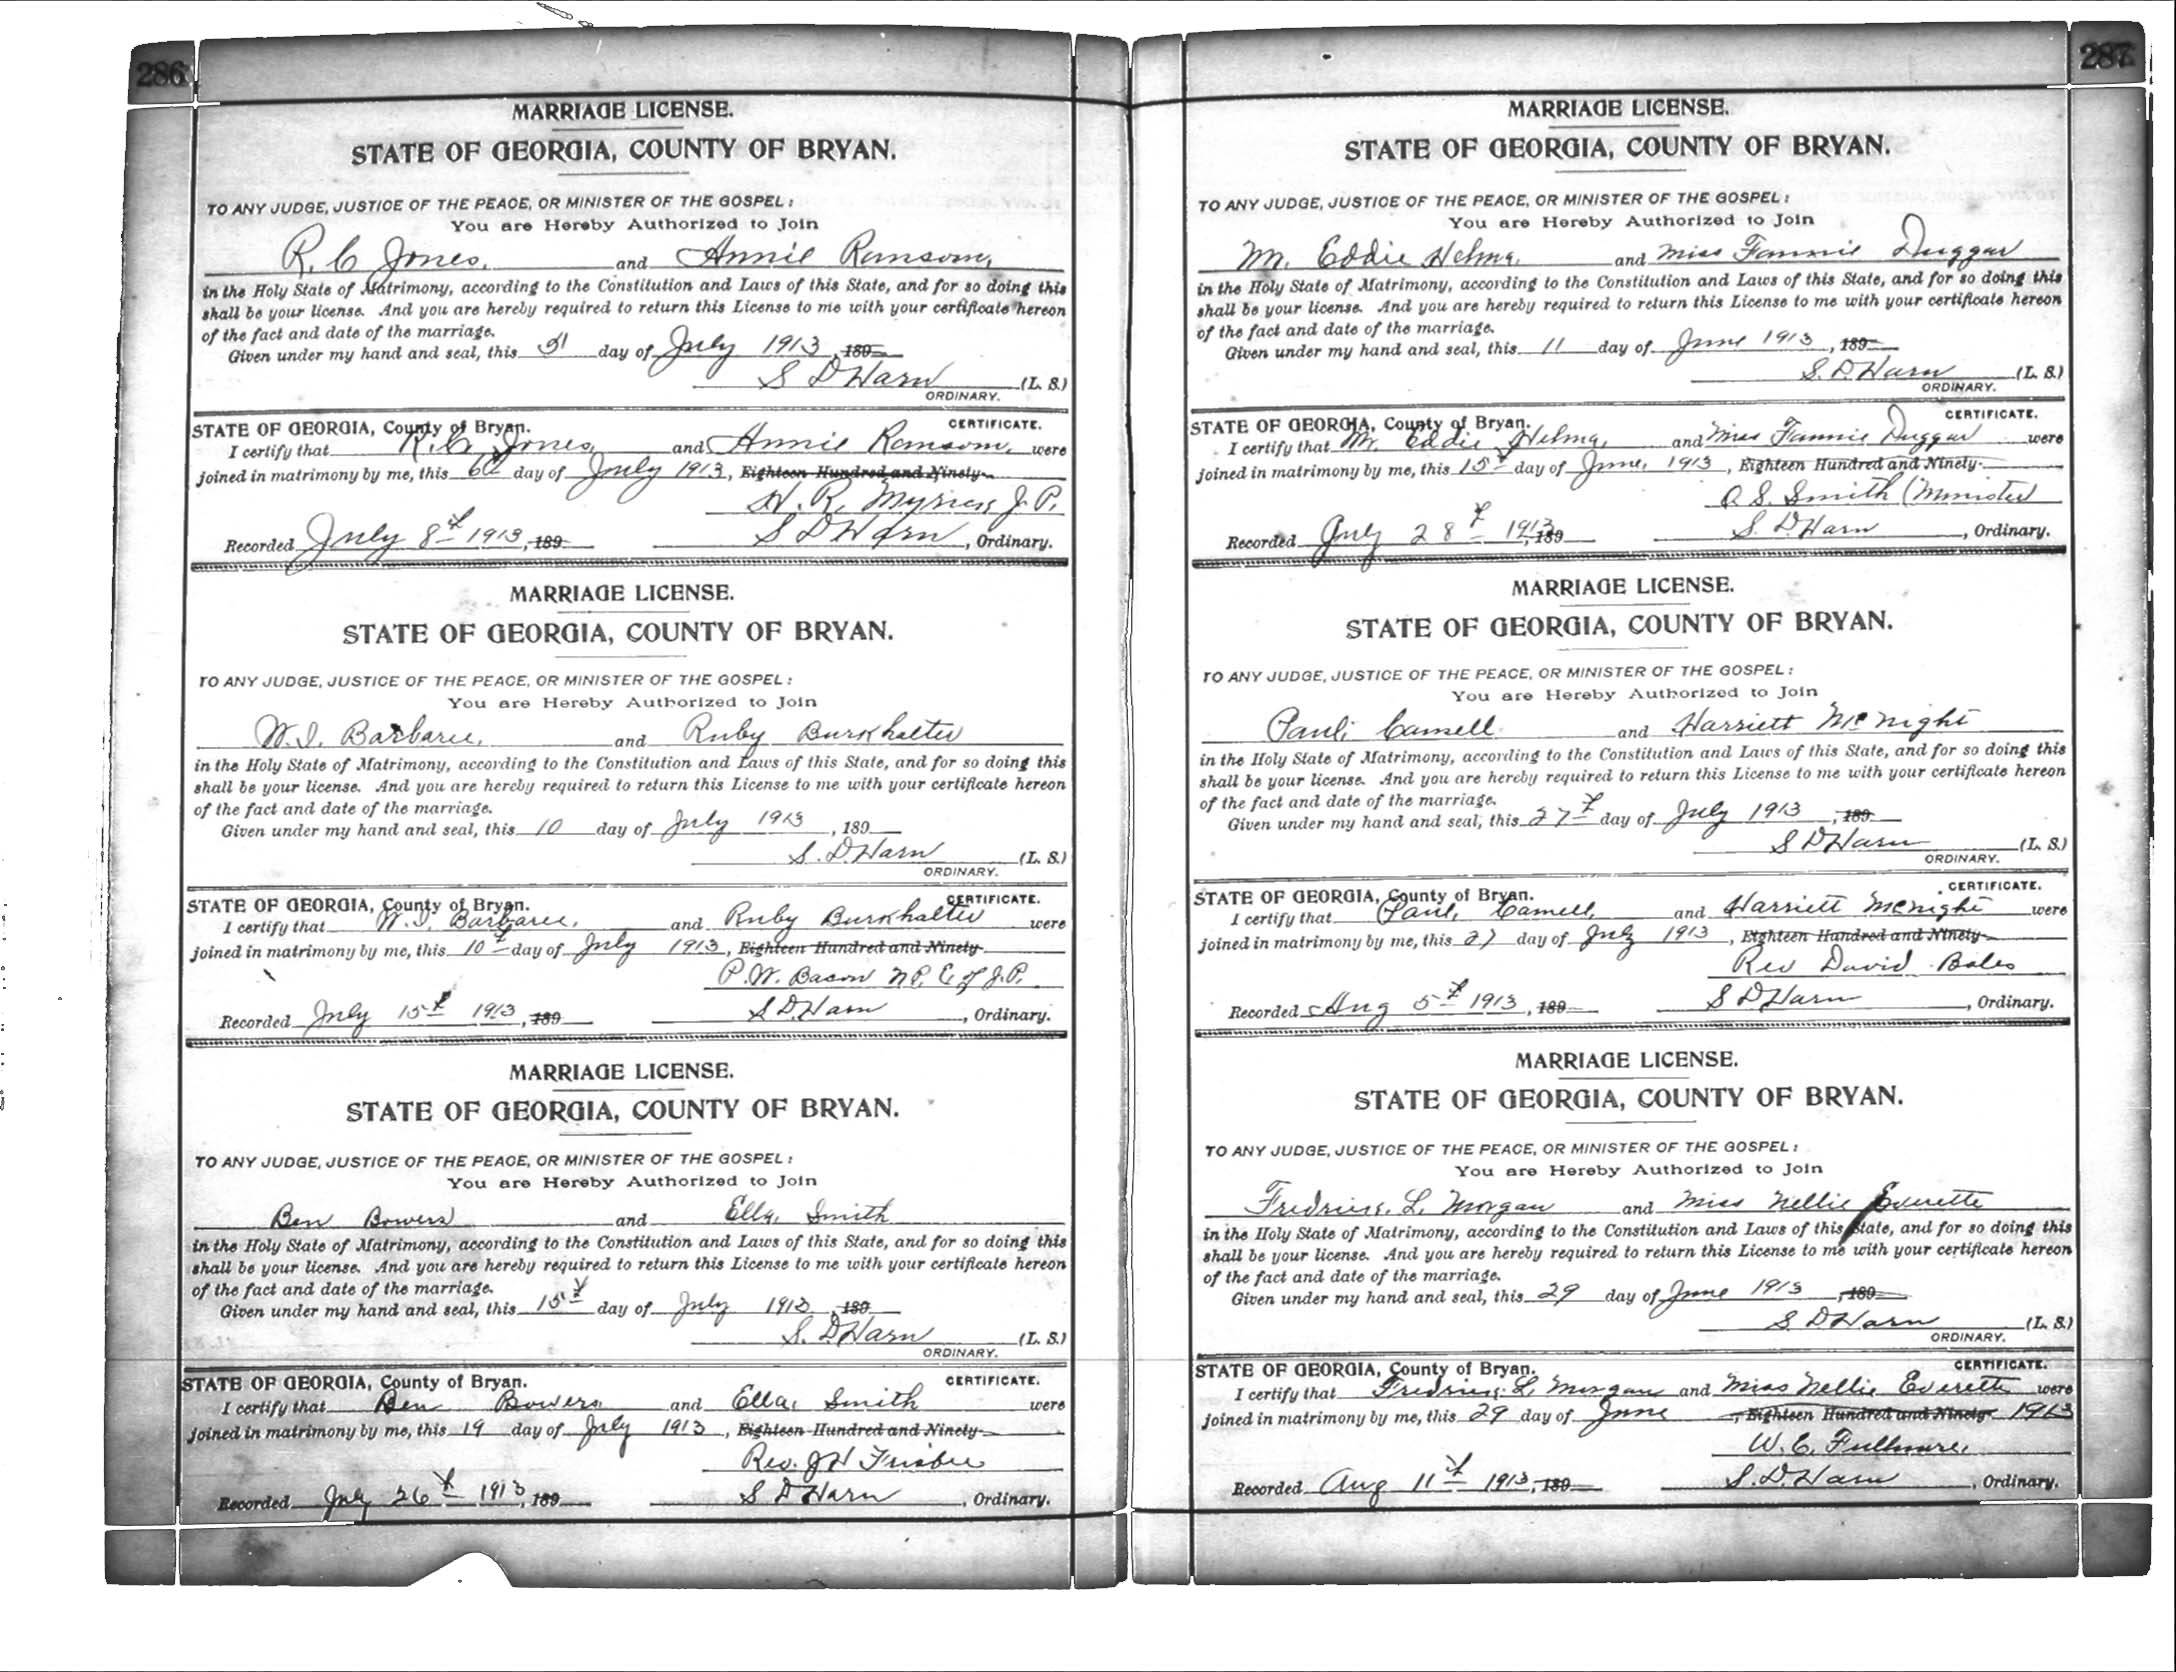 286
MARRIAGE LICENSE.
STATE OF GEORGIA, COUNTY OF BRYAN.
TO ANY JUDGE, JUSTICE OF THE PEACE, OR MINISTER OF THE GOSPEL:
You are Hereby Authorized to Join
R. C Jones, and Annie Ransom,
in the Holy State of Matrimony, according to the Constitution and Laws of this State, and for so doing this
shall be your license. And you are hereby required to return this License to me with your certificate hereon
of the fact and date of the marriage.
Given under my hand and seal, this day of July 1913, 189
S D Harn (L. S.)
ORDINARY.
CERTIFICATE.
STATE OF GEORGIA, County of Bryan.
I certify that R. C. Jones, and Annie Ransom, were
joined in matrimony by me, this 6th day of July 1913, Eighteen Hundred and Ninety
J. P.
Recorded July 8th 1913, 189 S D Harn, Ordinary.
MARRIAGE LICENSE.
STATE OF GEORGIA, COUNTY OF BRYAN.
TO ANY JUDGE, JUSTICE OF THE PEACE, OR MINISTER OF THE GOSPEL:
You are Hereby Authorized to Join
W. I. Barbaree, and Ruby Burkhalter
in the Holy State of Matrimony, according to the Constitution and Laws of this State, and for so doing this
shall be your license. And you are hereby required to return this License to me with your certificate hereon
of the fact and date of the marriage.
Given under my hand and seal, this 10 day of July 1913, 189
S. D. Harn (L. S.)
ORDINARY.
CERTIFICATE.
STATE OF GEORGIA, County of Bryan.
I certify that W. I. Barbaree, and Ruby Burkhalter were
joined in matrimony by me, this 10th day of July 1913, Eighteen Hundred and Ninety
P. W. Bacon J. P.
Recorded July 15th 1913, 189 S. D. Harn, Ordinary.
MARRIAGE LICENSE.
STATE OF GEORGIA, COUNTY OF BRYAN.
TO ANY JUDGE, JUSTICE OF THE PEACE, OR MINISTER OF THE GOSPEL:
You are Hereby Authorized to Join
Ben Bowers and Ella, Smith
in the Holy State of Matrimony, according to the Constitution and Laws of this State, and for so doing this
shall be your license. And you are hereby required to return this License to me with your certificate hereon
of the fact and date of the marriage.
Given under my hand and seal, this 15th day of July 1913, 189
S. D. Harn (L. S.)
ORDINARY.
CERTIFICATE.
STATE OF GEORGIA, County of Bryan.
I certify that Ben Bowers and Ella, Smith were
joined in matrimony by me, this 19 day of July 1913, Eighteen Hundred and Ninety
Rev. J H Frisbee
Recorded July 26th 1913, 189 S D Harn, Ordinary.
287
MARRIAGE LICENSE.
STATE OF GEORGIA, COUNTY OF BRYAN.
TO ANY JUDGE, JUSTICE OF THE PEACE, OR MINISTER OF THE GOSPEL:
You are Hereby Authorized to Join
Mr. Eddie Helms. and Miss Fannie Duggar
in the Holy State of Matrimony, according to the Constitution and Laws of this State, and for so doing this
shall be your license. And you are hereby required to return this License to me with your certificate hereon
of the fact and date of the marriage.
Given under my hand and seal, this 11 day of June 1913, 189
S. D. Harn (L. S.)
ORDINARY.
CERTIFICATE.
STATE OF GEORGIA, County of Bryan.
I certify that Mr. Eddie Helms, and Miss Fannie Duggar were
joined in matrimony by me, this 15th day of June, 1913, Eighteen Hundred and Ninety
S. Smith (Minister
Recorded July 28th 1913, 189 S. D. Harn, Ordinary.
MARRIAGE LICENSE.
STATE OF GEORGIA, COUNTY OF BRYAN.
TO ANY JUDGE, JUSTICE OF THE PEACE, OR MINISTER OF THE GOSPEL:
You are Hereby Authorized to Join
Paul, Camell and Harriett McNight
in the Holy State of Matrimony, according to the Constitution and Laws of this State, and for so doing this
shall be your license. And you are hereby required to return this License to me with your certificate hereon
of the fact and date of the marriage.
Given under my hand and seal, this 27th day of July 1913, 189
S D Harn (L. S.)
ORDINARY.
CERTIFICATE.
STATE OF GEORGIA, County of Bryan.
I certify that Paul, Camell, and Harriett McNight were
joined in matrimony by me, this 27 day of July 1913, Eighteen Hundred and Ninety
Rev David Bales
Recorded Aug 5th 1913, 189 S D Harn, Ordinary.
MARRIAGE LICENSE.
STATE OF GEORGIA, COUNTY OF BRYAN.
TO ANY JUDGE, JUSTICE OF THE PEACE, OR MINISTER OF THE GOSPEL:
You are Hereby Authorized to Join
L. Morgan and Miss Nellie Everette
in the Holy State of Matrimony, according to the Constitution and Laws of this State, and for so doing this
shall be your license. And you are hereby required to return this License to me with your certificate hereon
of the fact and date of the marriage.
Given under my hand and seal, this 29 day of June 1913, 189
S D Harn (L. S.)
ORDINARY.
CERTIFICATE.
STATE OF GEORGIA, County of Bryan.
I certify that L. Morgan and Miss Nellie Everette were
joined in matrimony by me, this 29 day of June, Eighteen Hundred and Ninety 1913
W. C. Fullmore,
Recorded Aug 11th 1913, 189 S. D. Harn, Ordinary.